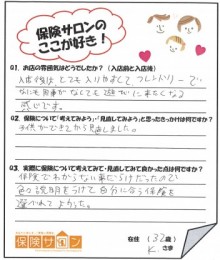 保険サロンの
ここが好き！
Q1. お店の雰囲気はどうでしたか？（入店前と入店後）
入店後は とても 入りやすくて フレンドリーで
なにも用事がなくても遊びに来たくなる
感じです。
Q2. 保険について「考えてみよう」・「見直してみよう」と思ったきっかけは何ですか？
子供ができてから見直しました。
Q3. 実際に保険について考えてみて・見直してみて良かった点は何ですか？
保険でわからない事だらけだったので
色々説明をうけて自分に合う保険を
選べれて よかった。
保険サロン
在住
(32歳)
K. さま